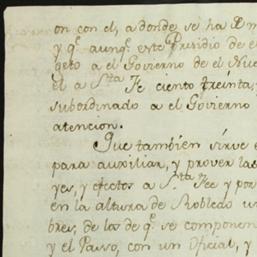 on con el, a donde, se ha
y q.e aunq.e este Presidio de e
geto a el Govierno de el Nue
el a S.ta Fe ciento treinta, 
subordinado a el Govierno
atencion.
Que tambien sirve e
para auxiliar, y prover las
yes, y efectos a S.ta Fee y por
en la altura de Robledo un
bres, de los de q.e se componen
y el Passo, con un Oficial, y